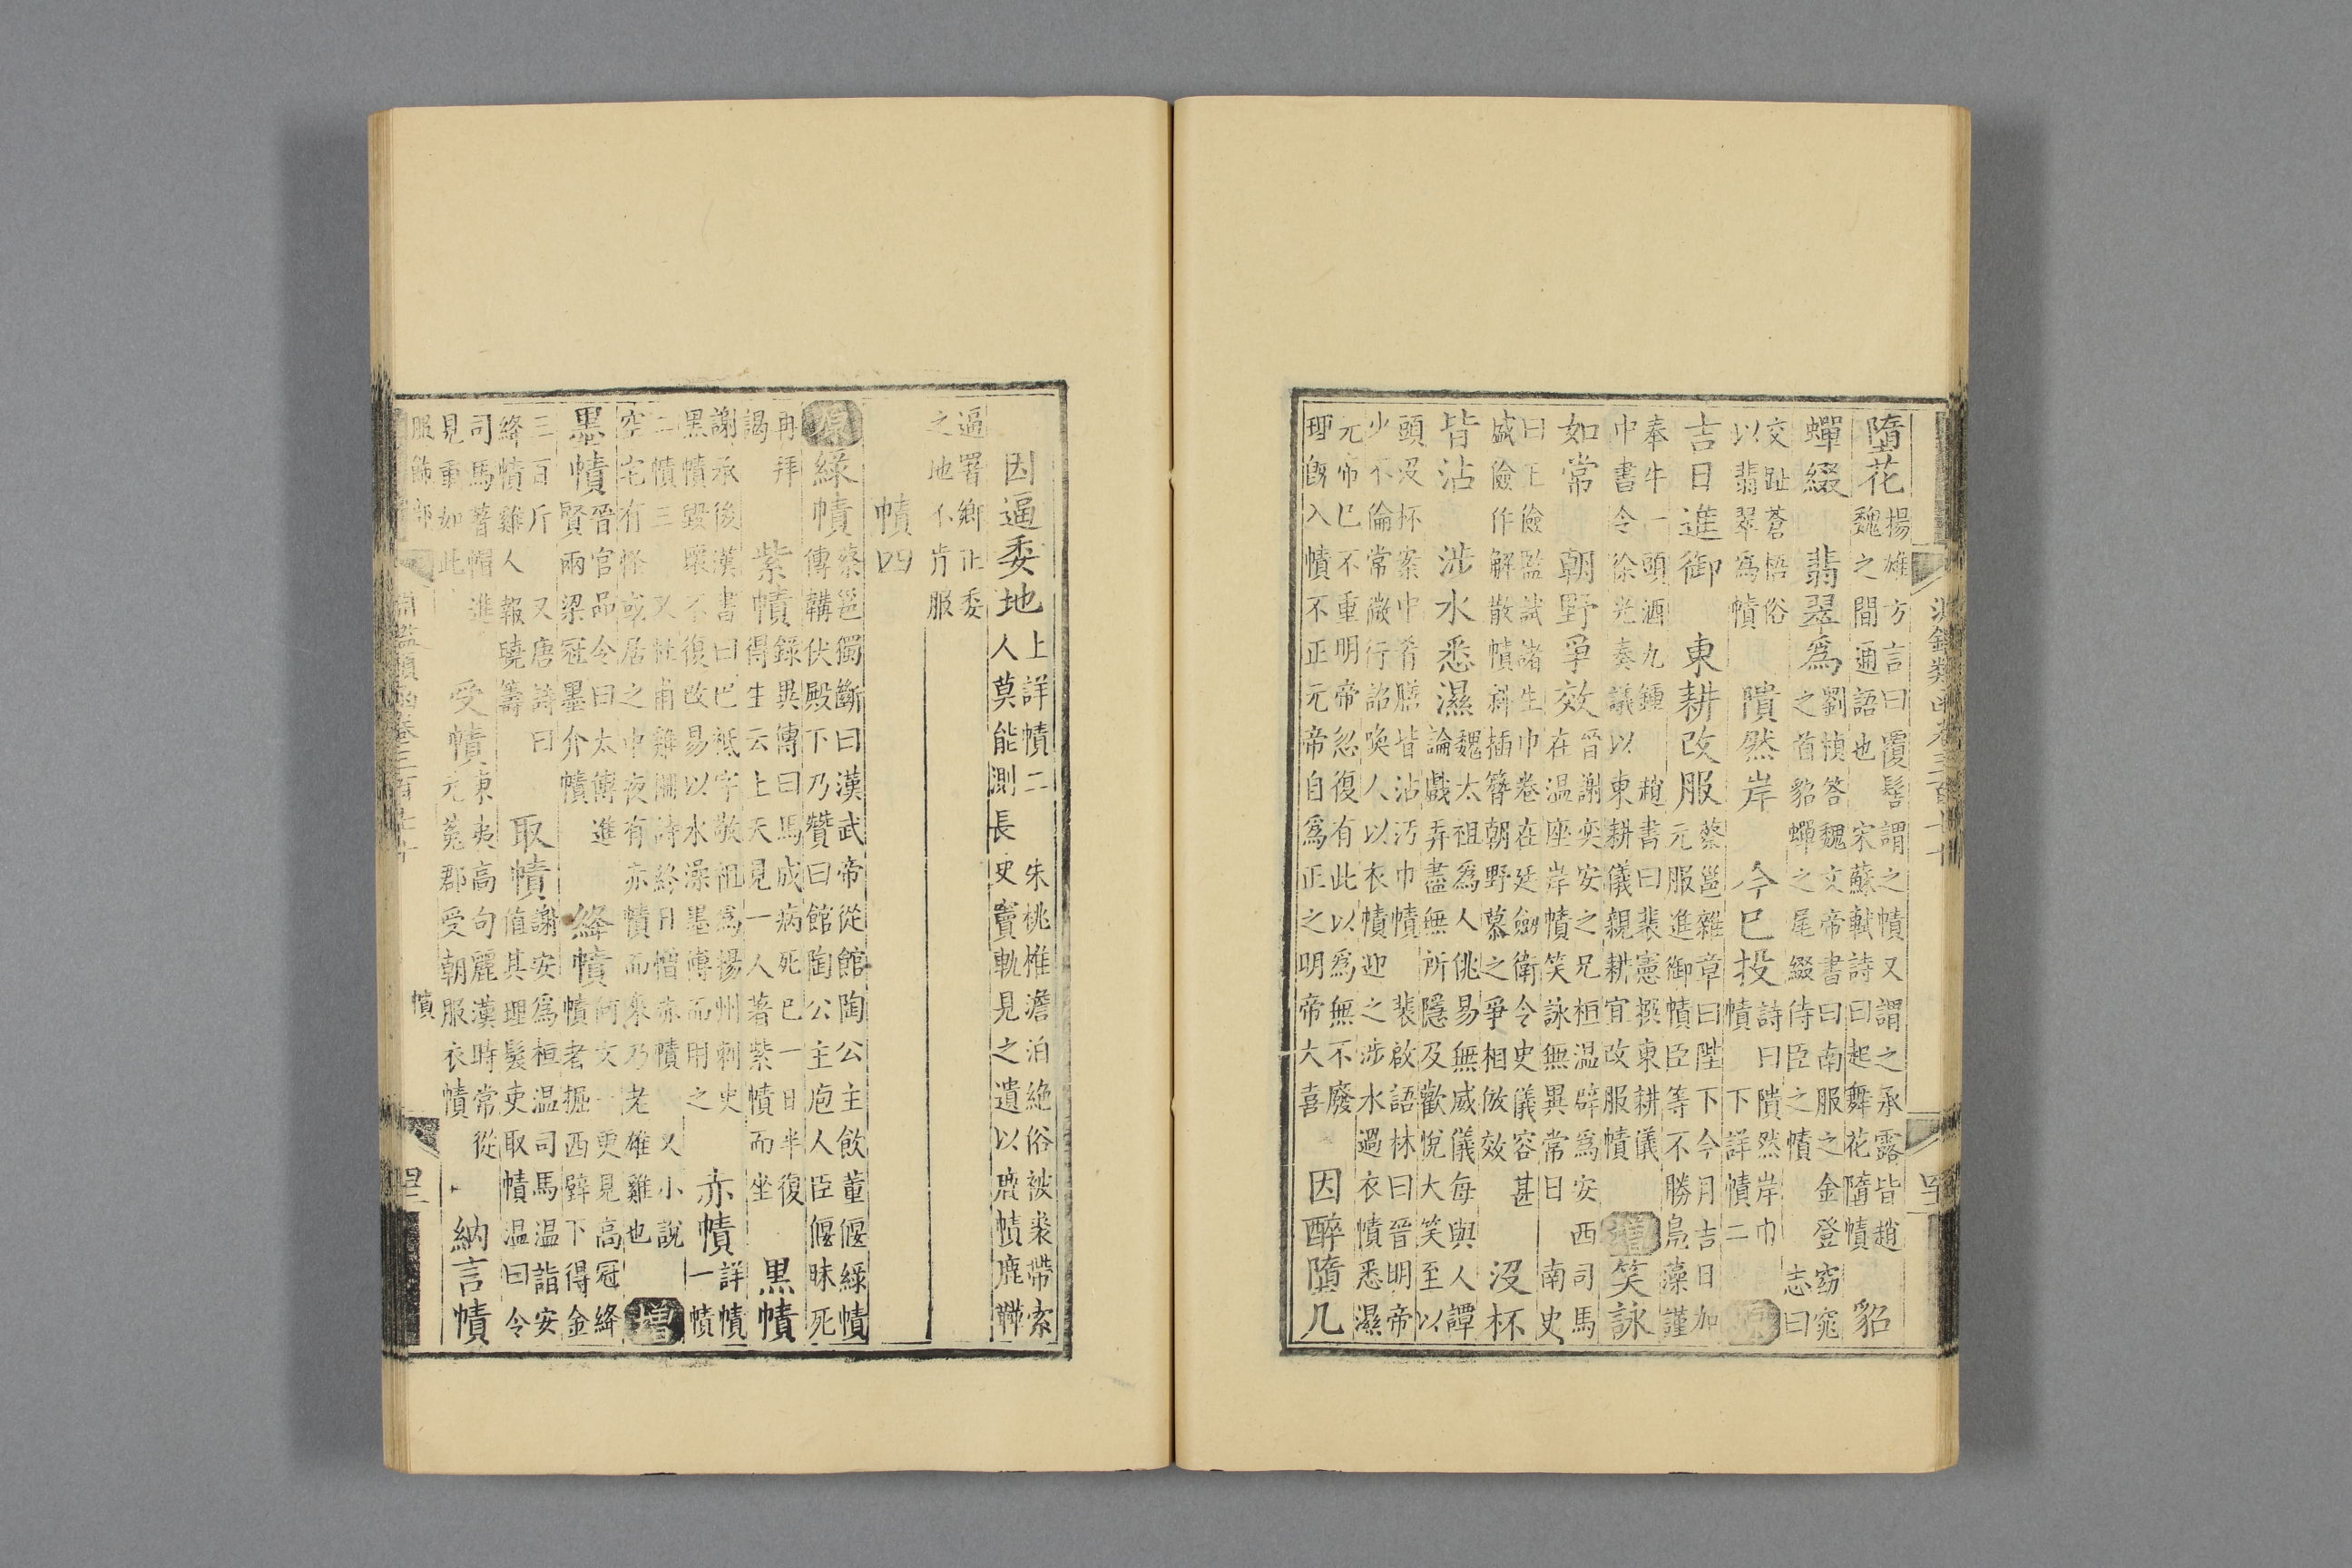 淵鑑類函卷三百七十
墮花 揚雄方言曰覆髻謂之幘又謂之承露皆趙
魏之間通語也 宋蘇軾詩曰起舞花隨幘 貂
蟬綴 翡翠爲 劉楨答魏文帝書曰南服之金登窈窕
之首貂蟬之尾綴侍臣之幘 志曰
交趾蒼梧俗
以翡翠爲幘 隤然岸 今已投 詩曰隤然岸巾
幘 下詳幘二 原
吉日進御 東耕改服 蔡邕雜章曰陛下今月吉日加
元服進御幘臣等不勝鳧藻謹
奉牛一頭酒九鍾 趙書曰裴憲撰東耕儀
中書令徐光奏議以東耕儀親耕宜改服幘 增 笑詠
如常 朝野爭效 晉謝奕安之兄桓温辟爲安西司馬
在温座岸幘笑詠無異常日 南史
曰王儉監試諸生巾卷在廷劒衛令史儀容甚
盛儉作解散幘斜插簪朝野慕之爭相倣效 沒杯
皆沾 涉水悉濕 魏太祖爲人佻易無威儀每與人譚
論戲弄盡無所隱及歡悅大笑至以
頭沒杯案中肴膳皆沾汚巾幘 裴啟語林曰晉明帝
少不倫常微行詔喚人以衣幘迎之涉水過衣幘悉濕
元帝已不重明帝忽復有此以爲無不廢
理旣入幘不正元帝自爲正之明帝大喜 因醉墮几
因逼委地 上詳幘二 朱桃椎澹泊絶俗被裘帶索
人莫能測 長史竇軌見之遺以鹿幘鹿鞾
逼署鄉正委
之地不肯服
幘四
原 綠幘 蔡邕獨斷曰漢武帝從館陶公主飲董偃綠幘
傅韝伏殿下乃贊曰館陶公主庖人臣偃昧死
再拜
謁 紫幘 錄異傳曰馬成病死已一日半復
得生云上天見一人著紫幘而坐 黒幘
謝承後漢書曰巴祗字敬祖爲揚州刺史
黑幘毀壞不復改易以水澡墨傅而用之 赤幘 詳幘
一幘
二幘三 又杜甫雞鬭詩終日憎赤幘 又小說
空宅有怪或居之中夜有赤幘而來乃老雄雞也 增
墨幘 晉官品令曰太傅進
賢兩梁冠墨介幘 絳幘 何文一更見高冠絳
幘老摳西壁下得金
三百斤 又唐詩曰
絳幘雞人報曉籌 取幘 謝安爲桓温司馬温詣安
值其理髮吏取幘温曰令
司馬著帽進
見重如此 受幘 東夷高句麗漢時常從
元菟郡受朝服衣幘 納言幘
服飾部 淵鑑類函卷三百七十 幘